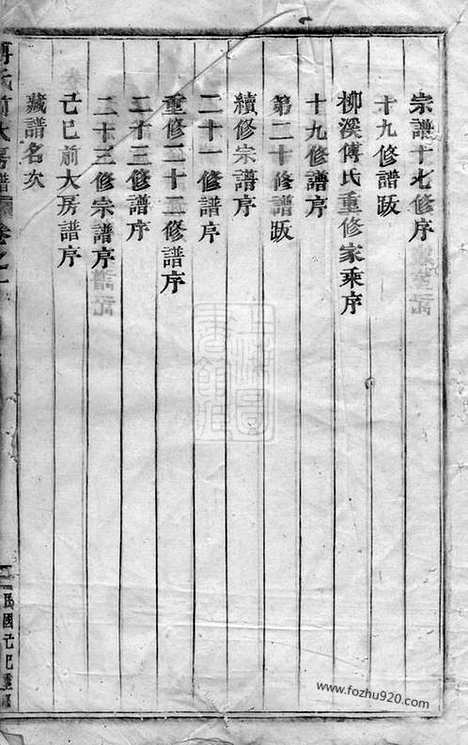 宗譜十七修序
十九修譜跋
柳溪傅氏重修家乘序
十九修譜序
第二十修譜跋
續修宗譜序
二十一修譜序
重修二十二修譜序
二十三修譜序
二十三修宗譜序
己巳前大房譜序
藏譜名次
前大房譜 卷之一
民國己巳重修
www.fozhu920.com